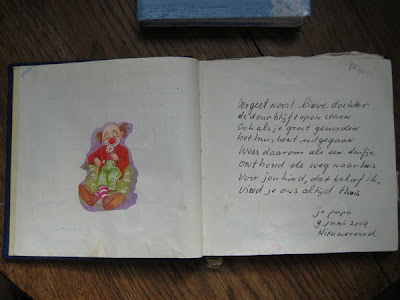 papa
Vergeet nooit lieve dochter
de deur blijft open staan
Ook als je groot geworden
het huis bent uitgegaan
Wees daarom als een duifje
onthoud de weg naar huis
Voor jou kind, dat beloof ik,
vind je ons altijd thuis
je papa
9 juni 2009